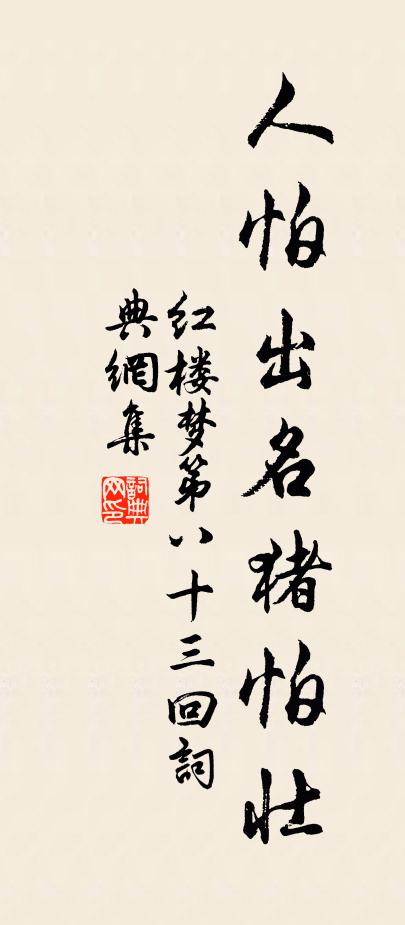 人怕出名猪怕壮
红楼梦第八十三回詞
典網集
詞典
网印